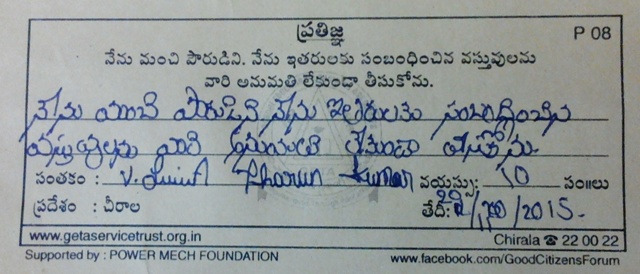 ప్రతిజ్ఞ P 08
నేను మంచి పౌరుడిని. నేను ఇతరులకు సంబంధించిన వస్తువులను
వారి అనుమతి లేకుండా తీసుకోను.
నేను మంచి పౌరుడిని నేను ఇతరులకు సంబంధించిన
వస్తువులను వారి అనుమతి లేకుండా తీసుకోను.
సంతకం : V. Tharun Kumar వయస్సు: 10 సం॥లు
ప్రదేశం : చీరాల తేదీ: /10/2015.
www.getaservicetrust.org.in Chirala ☎ 22 00 22
Supported by : POWER MECH FOUNDATION www.facebook.com/GoodCitizensForum